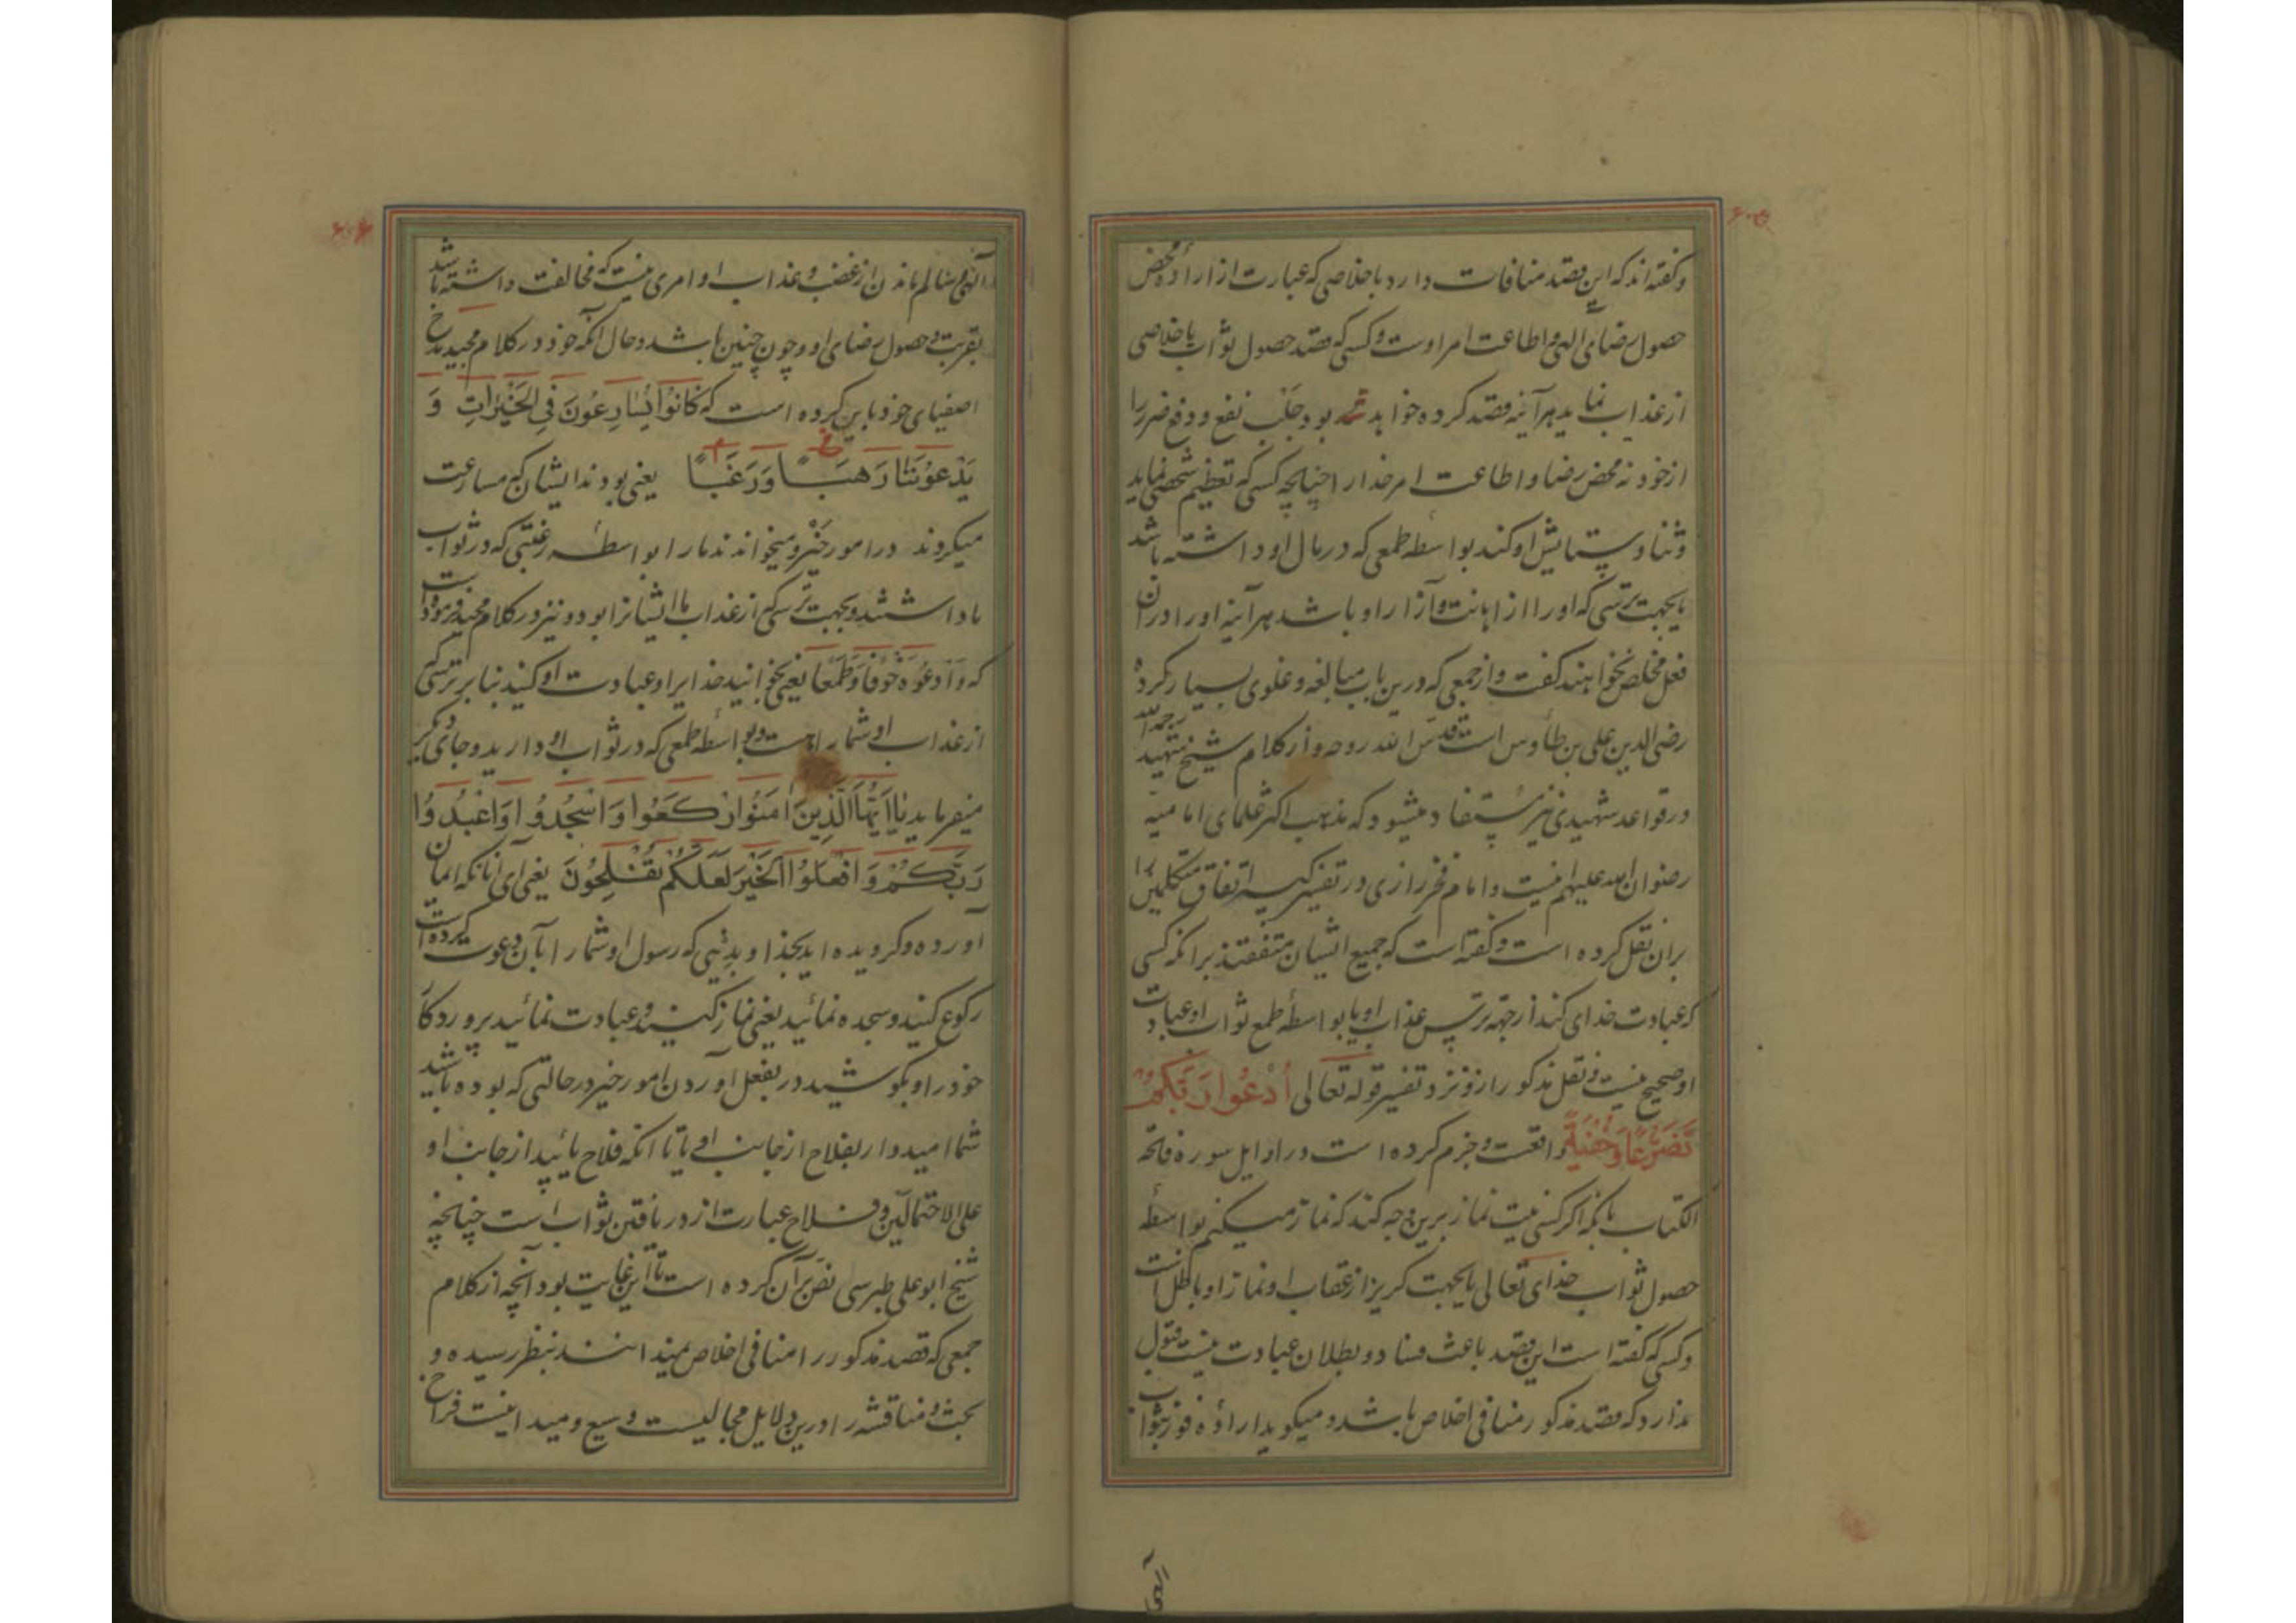 وگفته‌اند که این قصد منافات دارد باخلاصی که عبارت از ارادهٔ محض
حصول رضای الهی و اطاعت امر اوست وکسی که قصد حصول ثواب یا خلاصی
از عذاب نماید هرآینه قصد کرده خواهد بود جلب نفع و دفع ضرر را
از خود نه محض رضا و اطاعت امر خدا را چنانچه کسی که تعظیم شخصی نماید
وثنا و ستایش او کند بواسطه طمعی که در مال او داشته باشد
یا بجهت ترسی که اورا از اهانت و آزار او باشد هرآینه اورا در آن
فعل مخلص نخواهند گفت و از جمعی که درین باب مبالغه و غلوی بسیار کرده
رضی الدین علی بن طاوس است قدس الله روحه و از کلام شیخ شهید رحمه الله
در قواعد شهیدی نیز مستفاد میشود که مذهب اکثر علمای امامیه
رضوان الله علیهم اینست و امام فخر رازی در تفسیر کبیر اتفاق متکلمین را
بران نقل کرده است وگفته است که جمیع ایشان متفقند برانکه کسی
که عبادت خدای کند از جهة ترس عذاب او یا بواسطه طمع ثواب او عبادت
او صحیح نیست و نقل مذکور را نزد تفسیر قوله تعالی أدعوا ربکم
تضرعا وخفیة واقعست و جزم کرده است در اوایل سوره فاتحة
الکتاب بانکه اگر کسی نیت نماز برین وجه کند که نماز میکنم بواسطه
حصول ثواب خدای تعالی یا بجهت گریز از عقاب او نماز او باطل است
وکسی که گفته است این قصد باعث فساد و بطلان عبادت نیست قبول
ندارد که قصد مذکور منافی اخلاص باشد و میگوید ارادهٔ فوز بثواب
الهی و سالم ماندن از غضب و عذاب او امری نیست که مخالفت داشته باشد
بقربت و حصول رضای او و چون چنین باشد و حال آنکه خود در کلام مجید مدح
اصفیای خود باین کرده است که کَانُوا یُسَارِعُونَ فِی الخَیْرَاتِ وَ
یَدْعُونَنَا رَهَبًا وَرَغَبًا یعنی بودند ایشان که مسارعت
میکردند در امور خیر و میخواندند مارا بواسطه رغبتی که در ثواب
ما داشتند و بجهت ترسی که از عذاب ما ایشانرا بود و نیز در کلام مجید فرموده است
که وَادْعُوهُ خَوْفًا وَطَمَعًا یعنی بخوانید خدایرا و عبادت او کنید بنا بر ترسی که
از عذاب او شمارا هست و بواسطه طمعی که در ثواب او دارید و جای دیگر
میفرماید یَا اَیُّهَا الَّذِینَ اٰمَنُوا ارْکَعُوا وَاسْجُدُوا وَاعْبُدُوا
رَبَّکُمْ وَافْعَلُوا الْخَیْرَ لَعَلَّکُمْ تُفْلِحُونَ یعنی ای آنانکه ایمان
آورده وگرویده اید بخدا و بدینی که رسول او شمارا بآن دعوت کرده است
رکوع کنید و سجده نمائید یعنی نماز کنید و عبادت نمائید پروردگار
خود را و بکوشید در بفعل آوردن امور خیر در حالتی که بوده باشید
شما امیدوار بفلاح از جانب او یا تا آنکه فلاح یابید از جانب او
علی الاحتمالین و فلاح عبارت از دریافتن ثوابست چنانچه
شیخ ابو علی طبرسی نص بر آن کرده است تا این غایت بود آنچه از کلام
جمعی که قصد مذکور را منافی اخلاص نمیدانند بنظر رسیده و
بحث و مناقشه را درین دلایل مجالیست وسیع و میدانیست فراخ